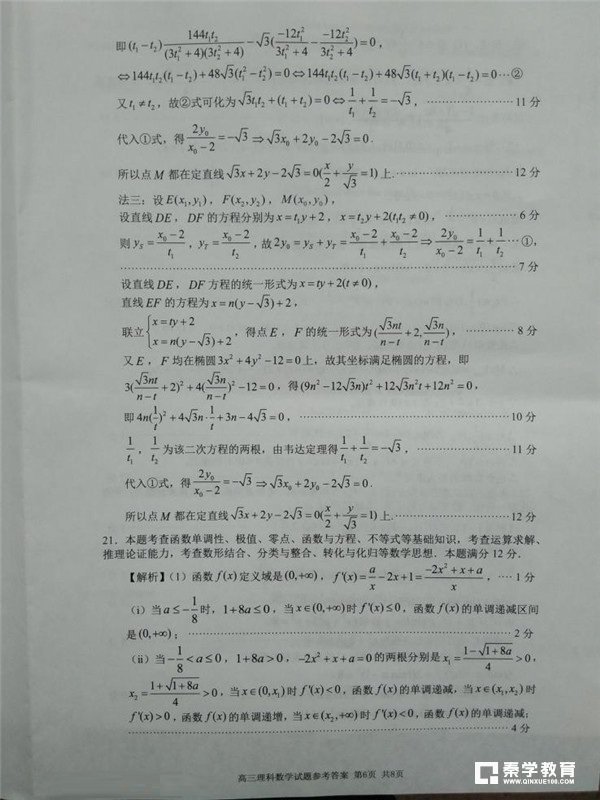 即(t₁-t₂) 144t₁t₂/((3t₁²+4)(3t₂²+4)) - √3(-12t₁²/(3t₁²+4) - -12t₂²/(3t₂²+4))=0，
⇔144t₁t₂(t₁-t₂)+48√3(t₁²-t₂²)=0⇔144t₁t₂(t₁-t₂)+48√3(t₁+t₂)(t₁-t₂)=0…②
又t₁≠t₂，故②式可化为√3t₁t₂+(t₁+t₂)=0⇔1/t₁+1/t₂=-√3，……11分
代入①式，得2y₀/(x₀-2)=-√3⇒√3x₀+2y₀-2√3=0.
所以点M都在定直线√3x+2y-2√3=0(x/2+y/√3=1)上.……12分
法三：设E(x₁,y₁)，F(x₂,y₂)，M(x₀,y₀)，
设直线DE，DF的方程分别为x=t₁y+2，x=t₂y+2(t₁t₂≠0)，……6分
则y_S=(x₀-2)/t₁，y_T=(x₀-2)/t₂，故2y₀=y_S+y_T=(x₀-2)/t₁+(x₀-2)/t₂⇒2y₀/(x₀-2)=1/t₁+1/t₂…①，
……7分
设直线DE，DF方程的统一形式为x=ty+2(t≠0)，
直线EF的方程为x=n(y-√3)+2，
联立{x=ty+2 x=n(y-√3)+2，得点E，F的统一形式为(√3nt/(n-t)+2,√3n/(n-t))，……8分
又E，F均在椭圆3x²+4y²-12=0上，故其坐标满足椭圆的方程，即
3(√3nt/(n-t)+2)²+4(√3n/(n-t))²-12=0，得(9n²-12√3n)t²+12√3n²t+12n²=0，
即4n(1/t)²+4√3n·1/t+3n-4√3=0，……10分
1/t₁，1/t₂为该二次方程的两根，由韦达定理得1/t₁+1/t₂=-√3，……11分
代入①式，得2y₀/(x₀-2)=-√3⇒√3x₀+2y₀-2√3=0.
所以点M都在定直线√3x+2y-2√3=0(x/2+y/√3=1)上.……12分
21．本题考查函数单调性、极值、零点、函数与方程、不等式等基础知识，考查运算求解、
推理论证能力，考查数形结合、分类与整合、转化与化归等数学思想．本题满分12分．
【解析】（1）函数f(x)定义域是(0,+∞)，f'(x)=a/x-2x+1=(-2x²+x+a)/x，……1分
（i）当a≤-1/8时，1+8a≤0，当x∈(0,+∞)时f'(x)≤0，函数f(x)的单调递减区间
是(0,+∞)；……2分
（ii）当-1/8<a≤0，1+8a>0，-2x²+x+a=0的两根分别是x₁=(1-√(1+8a))/4>0，
x₂=(1+√(1+8a))/4>0，当x∈(0,x₁)时f'(x)<0，函数f(x)的单调递减，当x∈(x₁,x₂)时
f'(x)>0，函数f(x)的单调递增，当x∈(x₂,+∞)时f'(x)<0，函数f(x)的单调递减；
……4分
高三理科数学试题参考答案 第6页 共8页
秦学教育
WWW.QINXUE100.COM